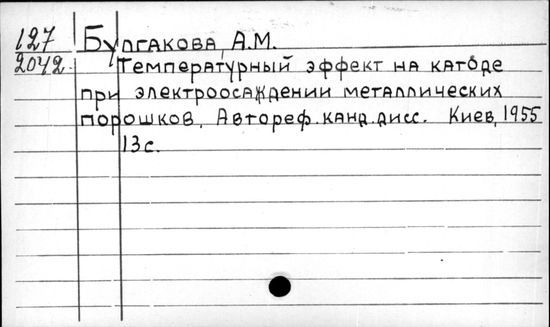 127 Булгакова, А.М.
2042 Температурный эффект на катоде
при электроосаждении металлических
порошков. Автореф.канд.дисс. Киев, 1955
13 с.